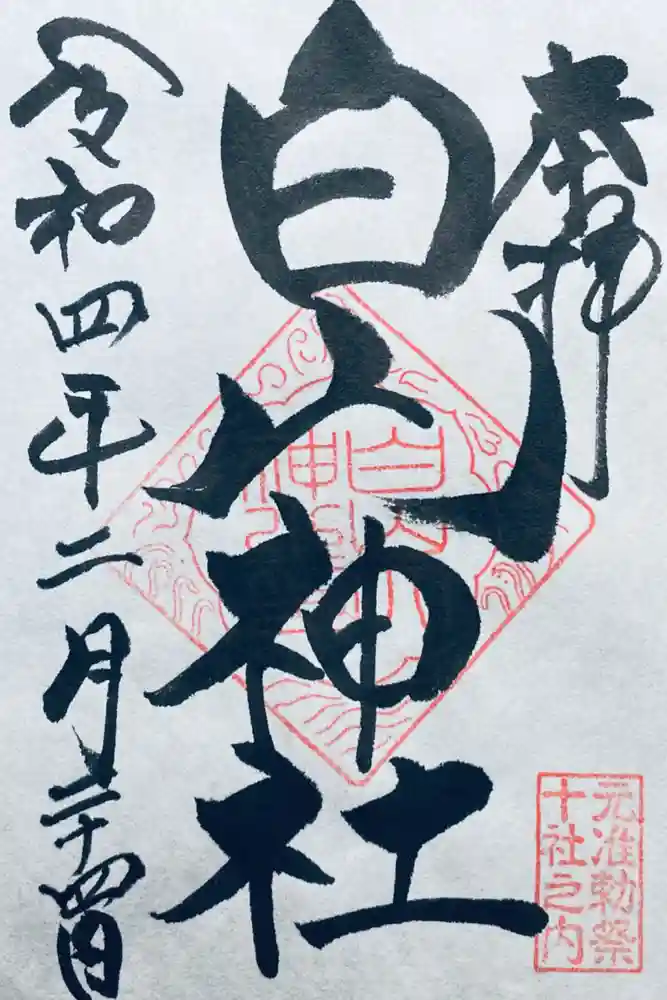 奉拝
白山神社
令和四年二月二十四日
白山
神社
元准勅祭
十社之内